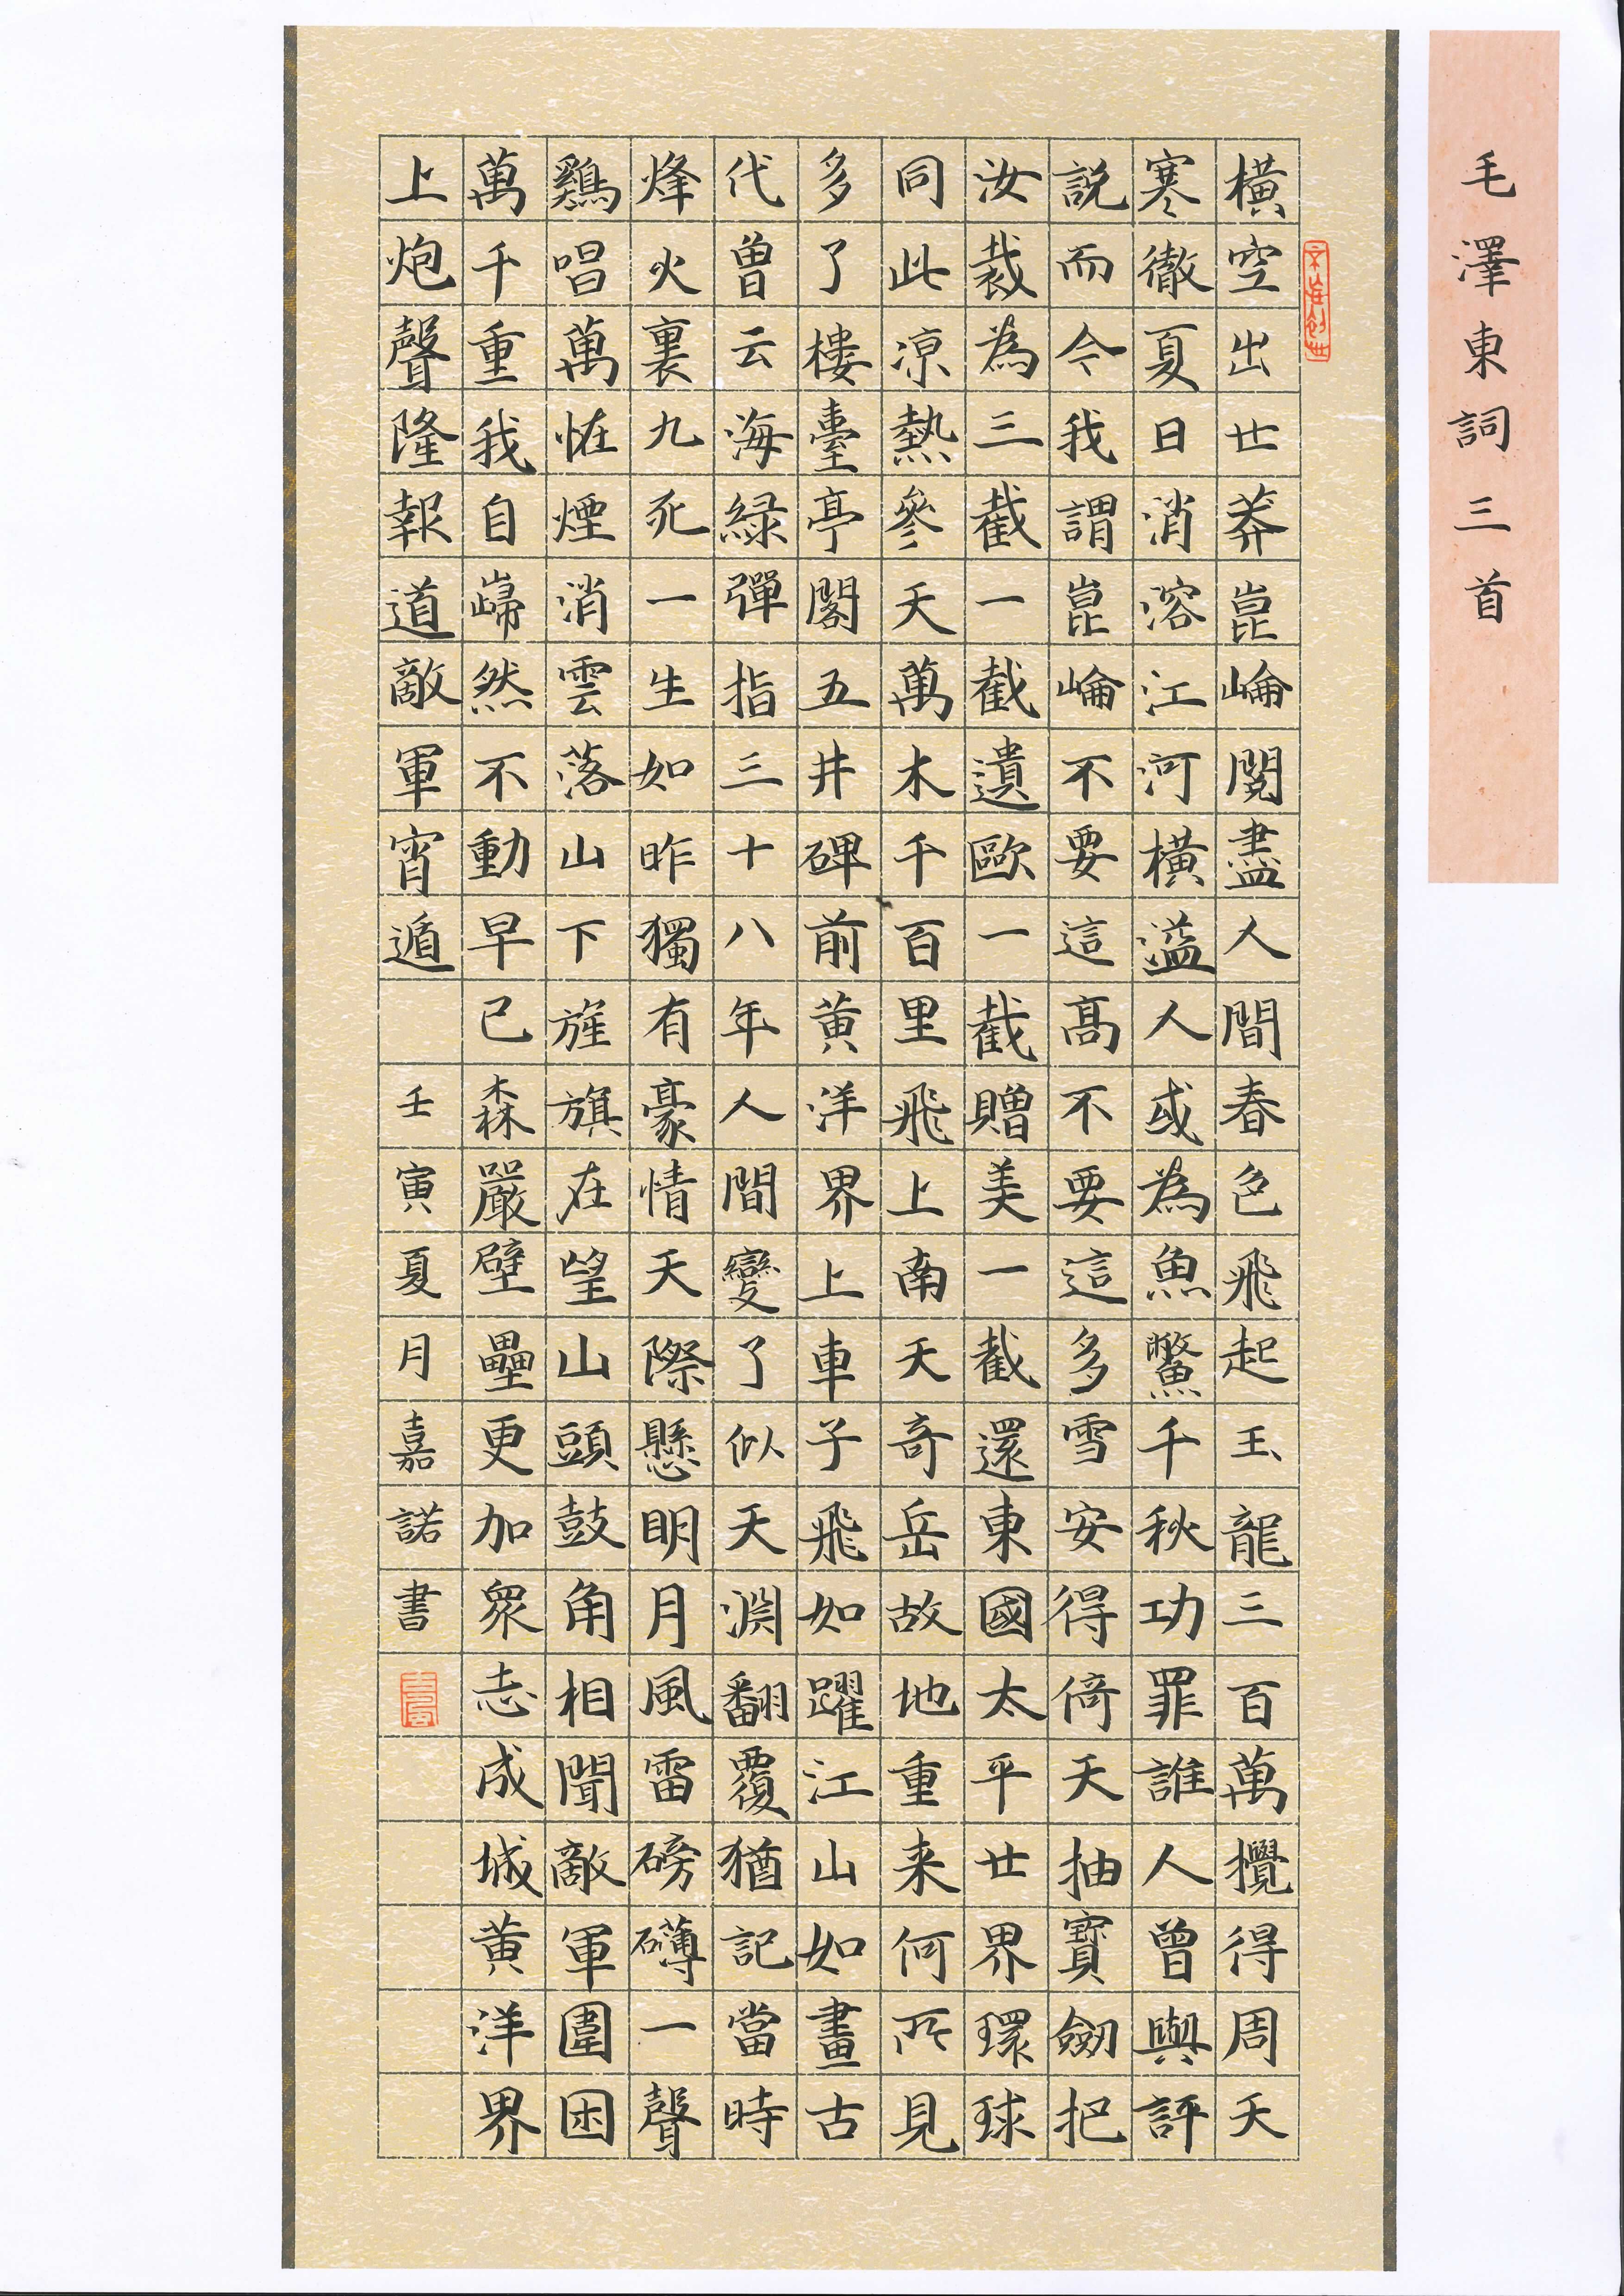 毛澤東詞三首
橫空出世莽崑崙閱盡人間春色飛起玉龍三百萬攪得周天
寒徹夏日消溶江河橫溢人或為魚鱉千秋功罪誰人曾與評
說而今我謂崑崙不要這高不要這多雪安得倚天抽寶劒把
汝裁為三截一截遺歐一截贈美一截還東國太平世界環球
同此凉熱參天萬木千百里飛上南天奇岳故地重来何所見
多了樓臺亭閣五井碑前黃洋界上車子飛如躍江山如畫古
代曾云海緑彈指三十八年人間變了似天淵翻覆猶記當時
烽火裏九死一生如昨獨有豪情天際懸明月風雷磅礴一聲
鷄唱萬恠煙消雲落山下旌旗在望山頭鼓角相聞敵軍圍困
萬千重我自巋然不動早已森嚴壁壘更加眾志成城黃洋界
上炮聲隆報道敵軍宵遁 壬寅夏月嘉諾書